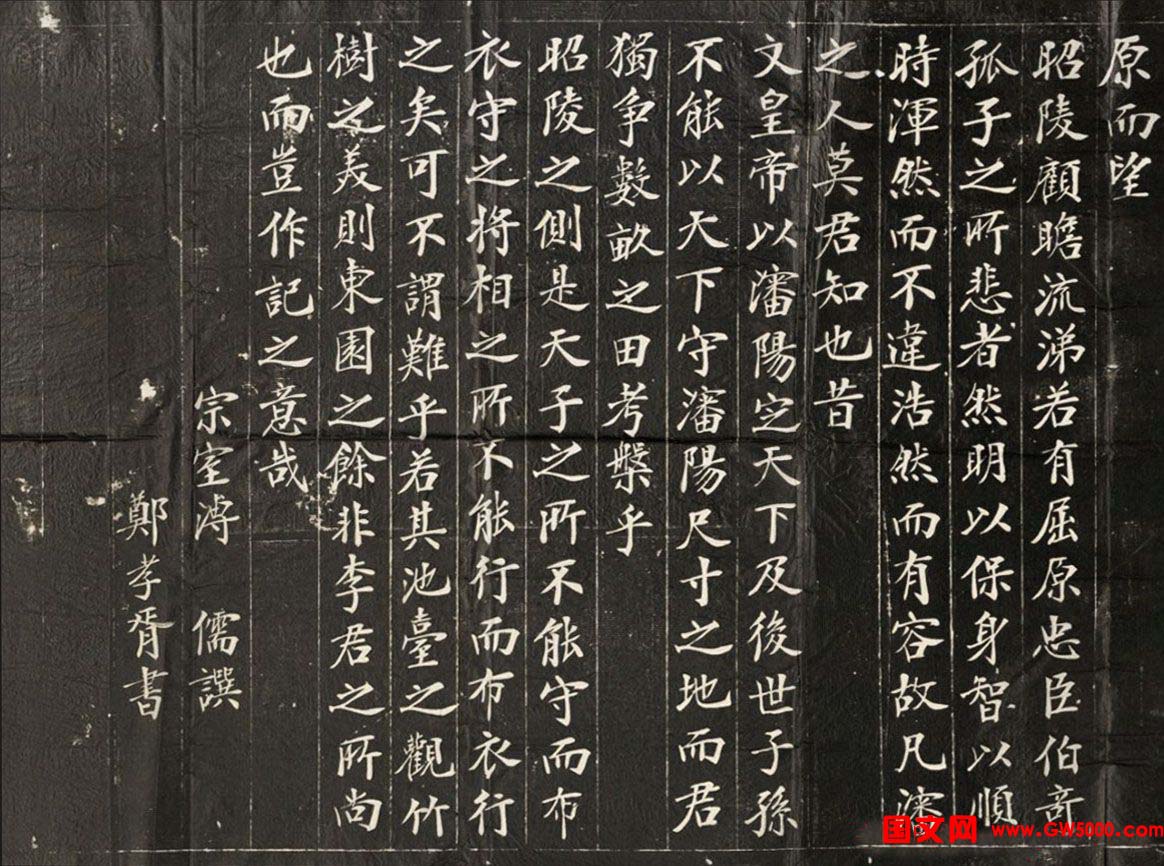 原而望
昭陵顧瞻流涕若有屈原忠臣伯奇
孤子之所悲者然明以保身智以順
時渾然而不違浩然而有容故凡瀋
之人莫君知也昔
文皇帝以瀋陽定天下及後世子孫
不能以天下守瀋陽尺寸之地而君
獨爭數畝之田考槃乎
昭陵之側是天子之所不能守而布
衣守之將相之所不能行而布衣行
之矣可不謂難乎若其池臺之觀竹
樹之美則東園之餘非李君之所尚
也而豈作記之意哉
宗室溥 儒譔
鄭孝胥書
国文网 www.GW5000.com